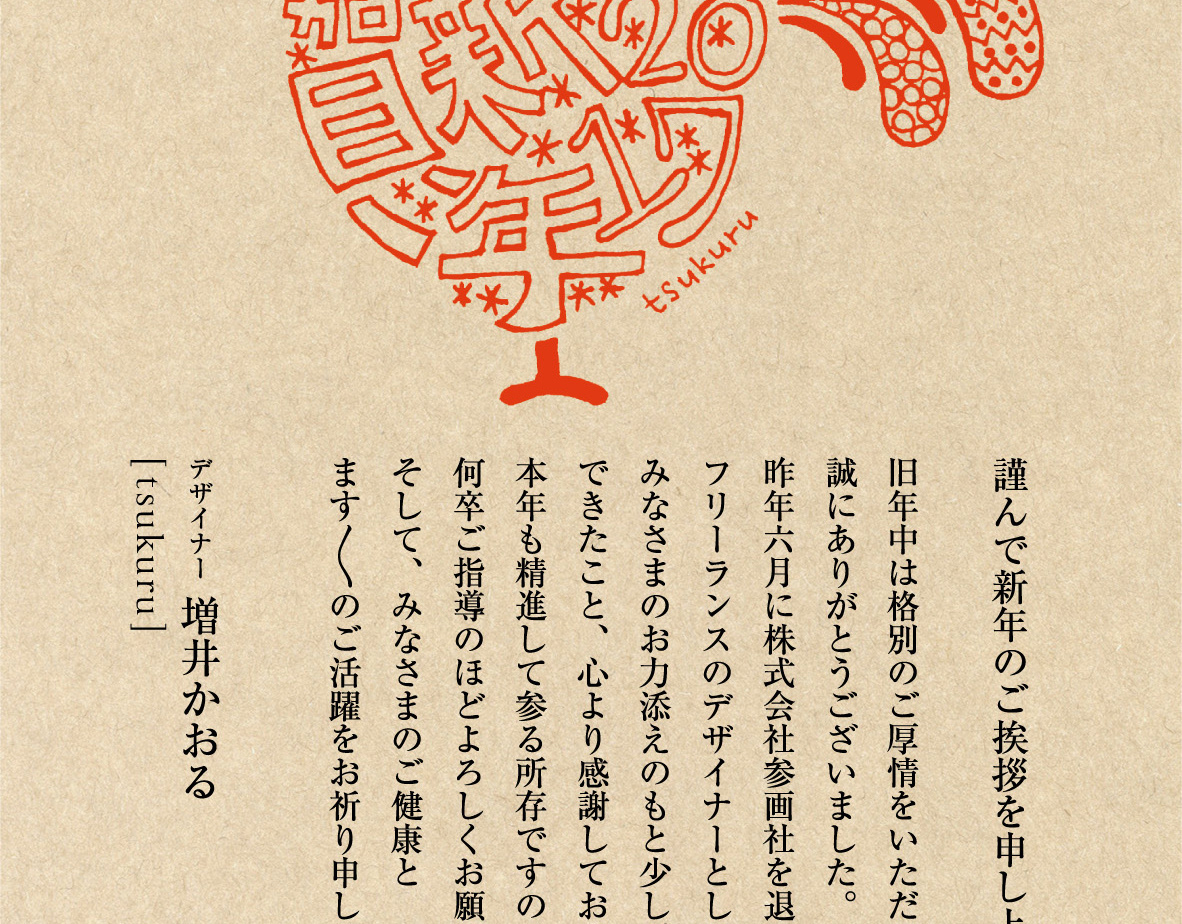 賀新年
2017
tsukuru
謹んで新年のご挨拶を申し
旧年中は格別のご厚情をいただ
誠にありがとうございました。
昨年六月に株式会社参画社を退
フリーランスのデザイナーとし
みなさまのお力添えのもと少し
できたこと、心より感謝してお
本年も精進して参る所存ですの
何卒ご指導のほどよろしくお願
そして、みなさまのご健康と
ます〱のご活躍をお祈り申し
デザイナー 増井かおる
[tsukuru]